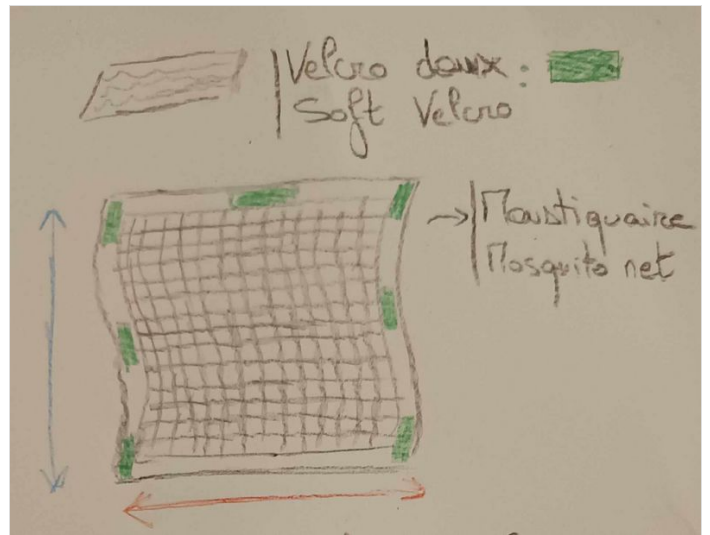 Velcro doux :
Soft Velcro
Moustiquaire
Mosquito net